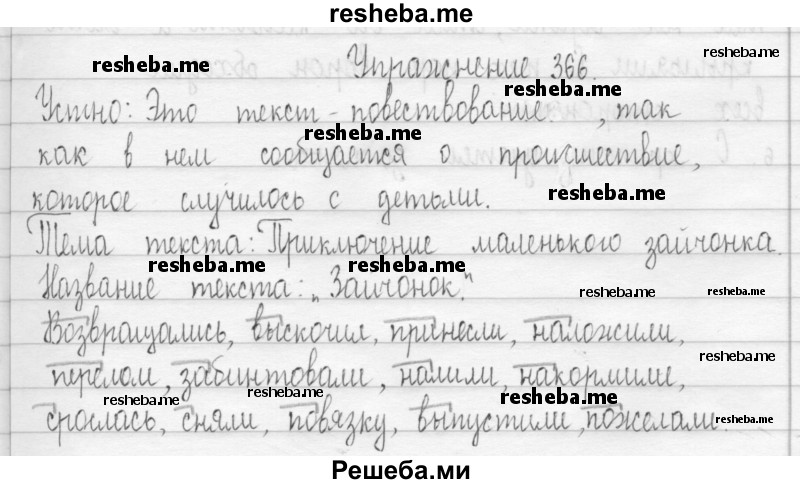 resheba.me
Упражнение 366.
resheba.me
resheba.me
Устно: Это текст - повествование, так
resheba.me
resheba.me
как в нем сообщается о происшествие,
которое случилось с детьми.
resheba.me
Тема текста: Приключение маленького зайчонка.
resheba.me
resheba.me
Название текста: „Зайчонок."
resheba.me
resheba.me
Возвращались, выскочил, принесли, наложили,
resheba.me
перелом, забинтовали, налили, накормили,
resheba.me
resheba.me
срослась, сняли, повязку, выпустили, пожелали.
resheba.me
Решеба.ми